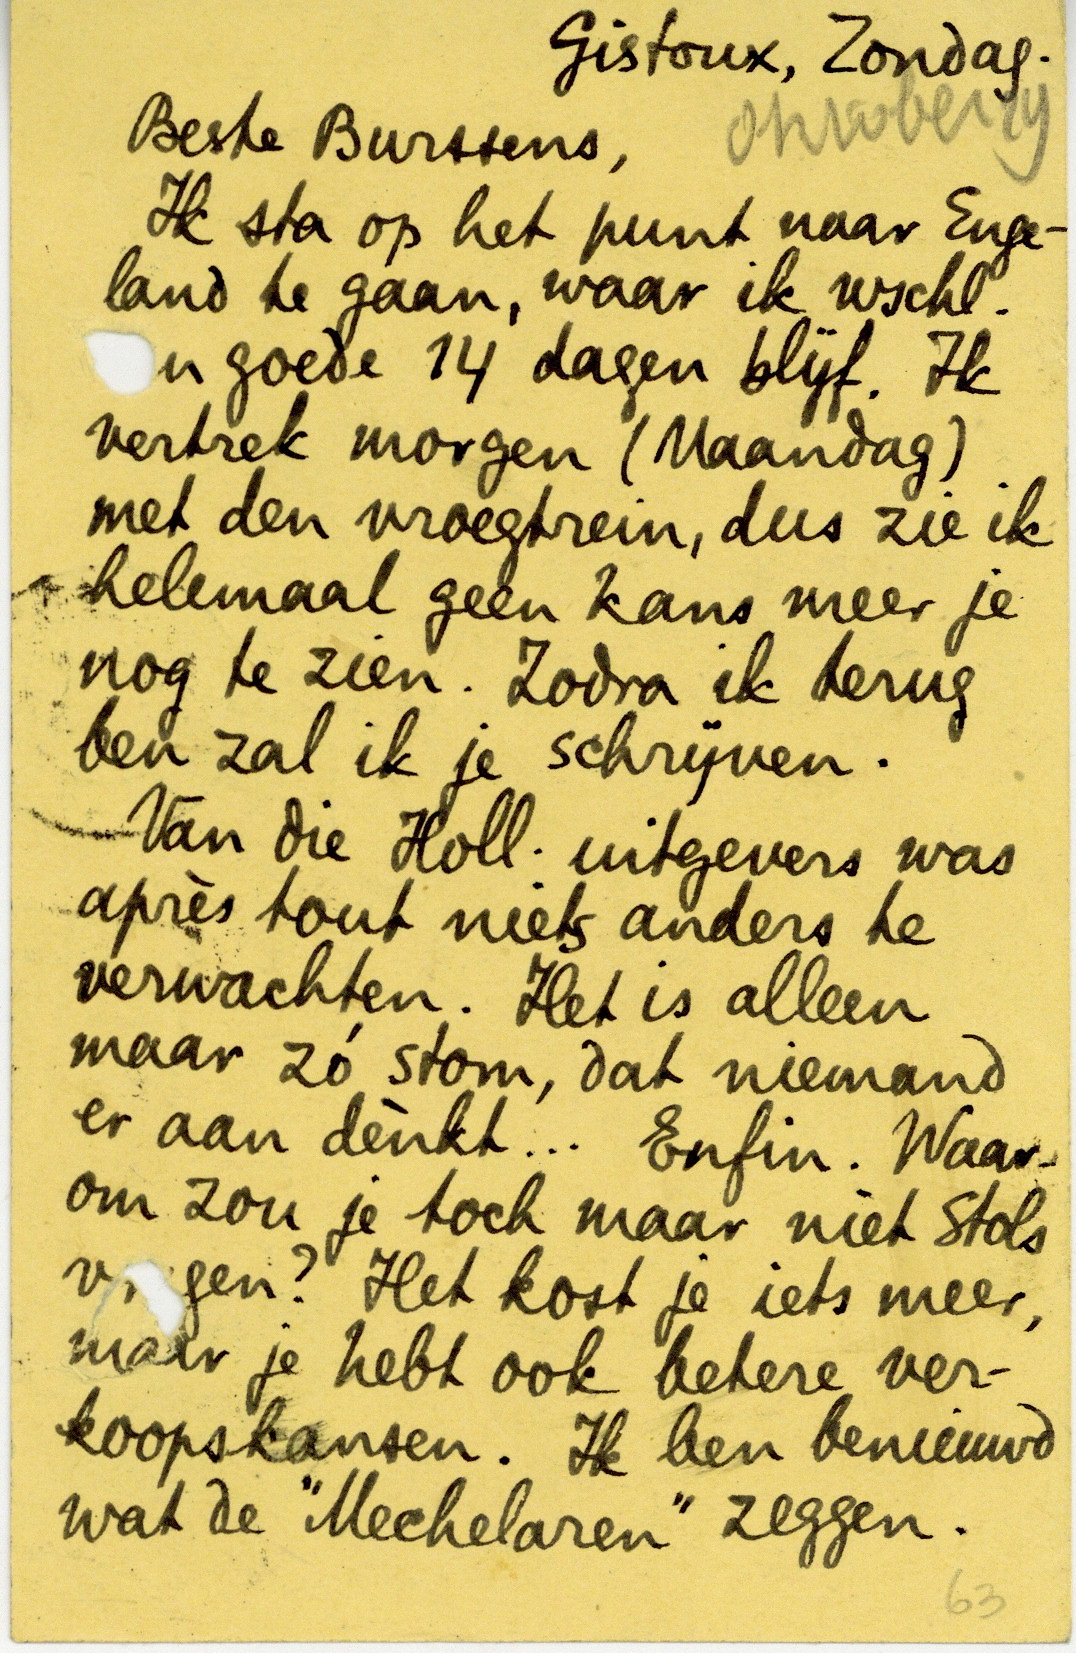 Gistoux, Zondag.
Beste Burssens,
Ik sta op het punt naar Enge-
land te gaan, waar ik wschl.
n goede 14 dagen blijf. Ik
vertrek morgen (Maandag)
met den vroegtrein, dus zie ik
helemaal geen kans meer je
nog te zien. Zodra ik terug
ben zal ik je schrijven.
Van die Holl. uitgevers was
après tout niets anders te
verwachten. Het is alleen
maar zó stom, dat niemand
er aan dènkt... Enfin. Waar-
om zou je toch maar niet Stols
vragen? Het kost je iets meer,
maar je hebt ook betere ver-
koopskansen. Ik ben benieuwd
wat de "Mechelaren" zeggen.
63